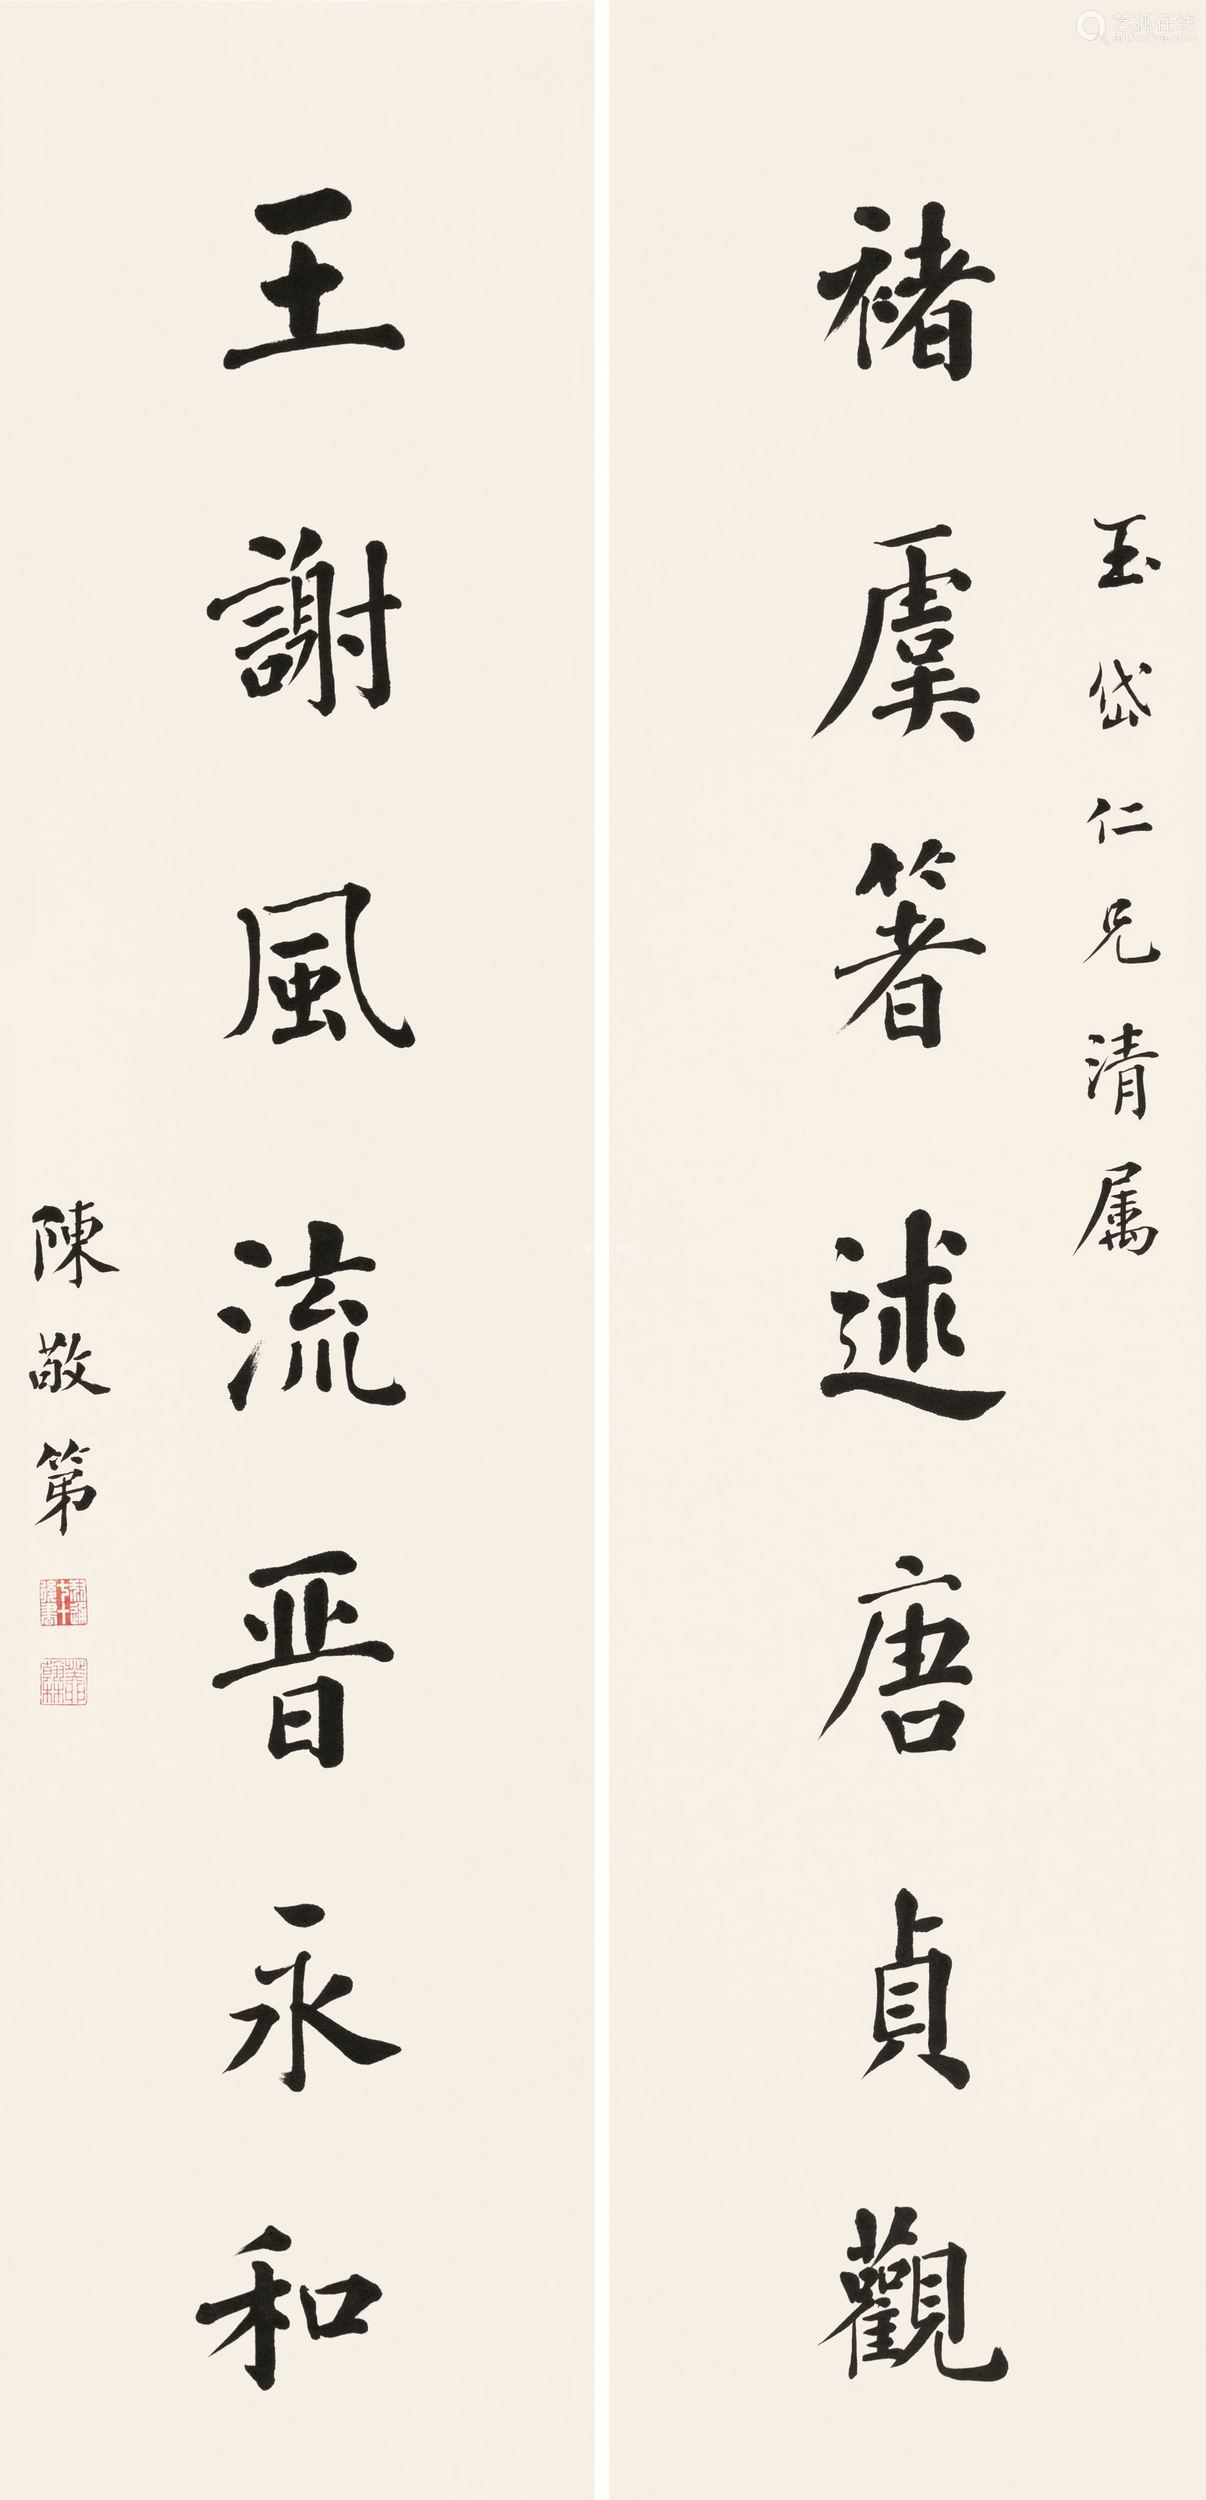 玉岱仁兄清属
褚虞箸述唐貞觀
王謝風流晋永和
陳敬第
艺狐在线
artfoxlive.com